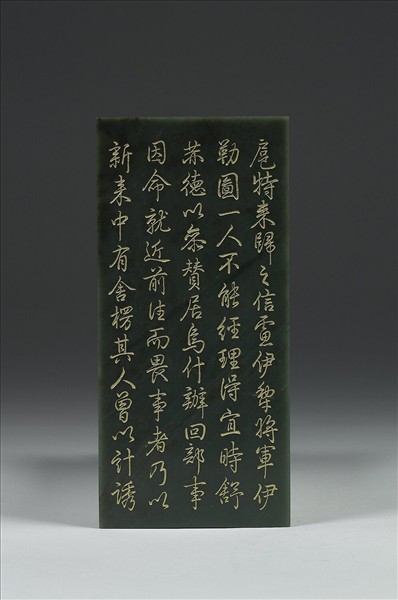 扈特来歸之信慮伊犂將軍伊
勒圖一人不能經理得宜時舒
赫德以叅贊居烏什辦回部事
因命就近前往而畏事者乃以
新来中有舍楞其人曾以計誘